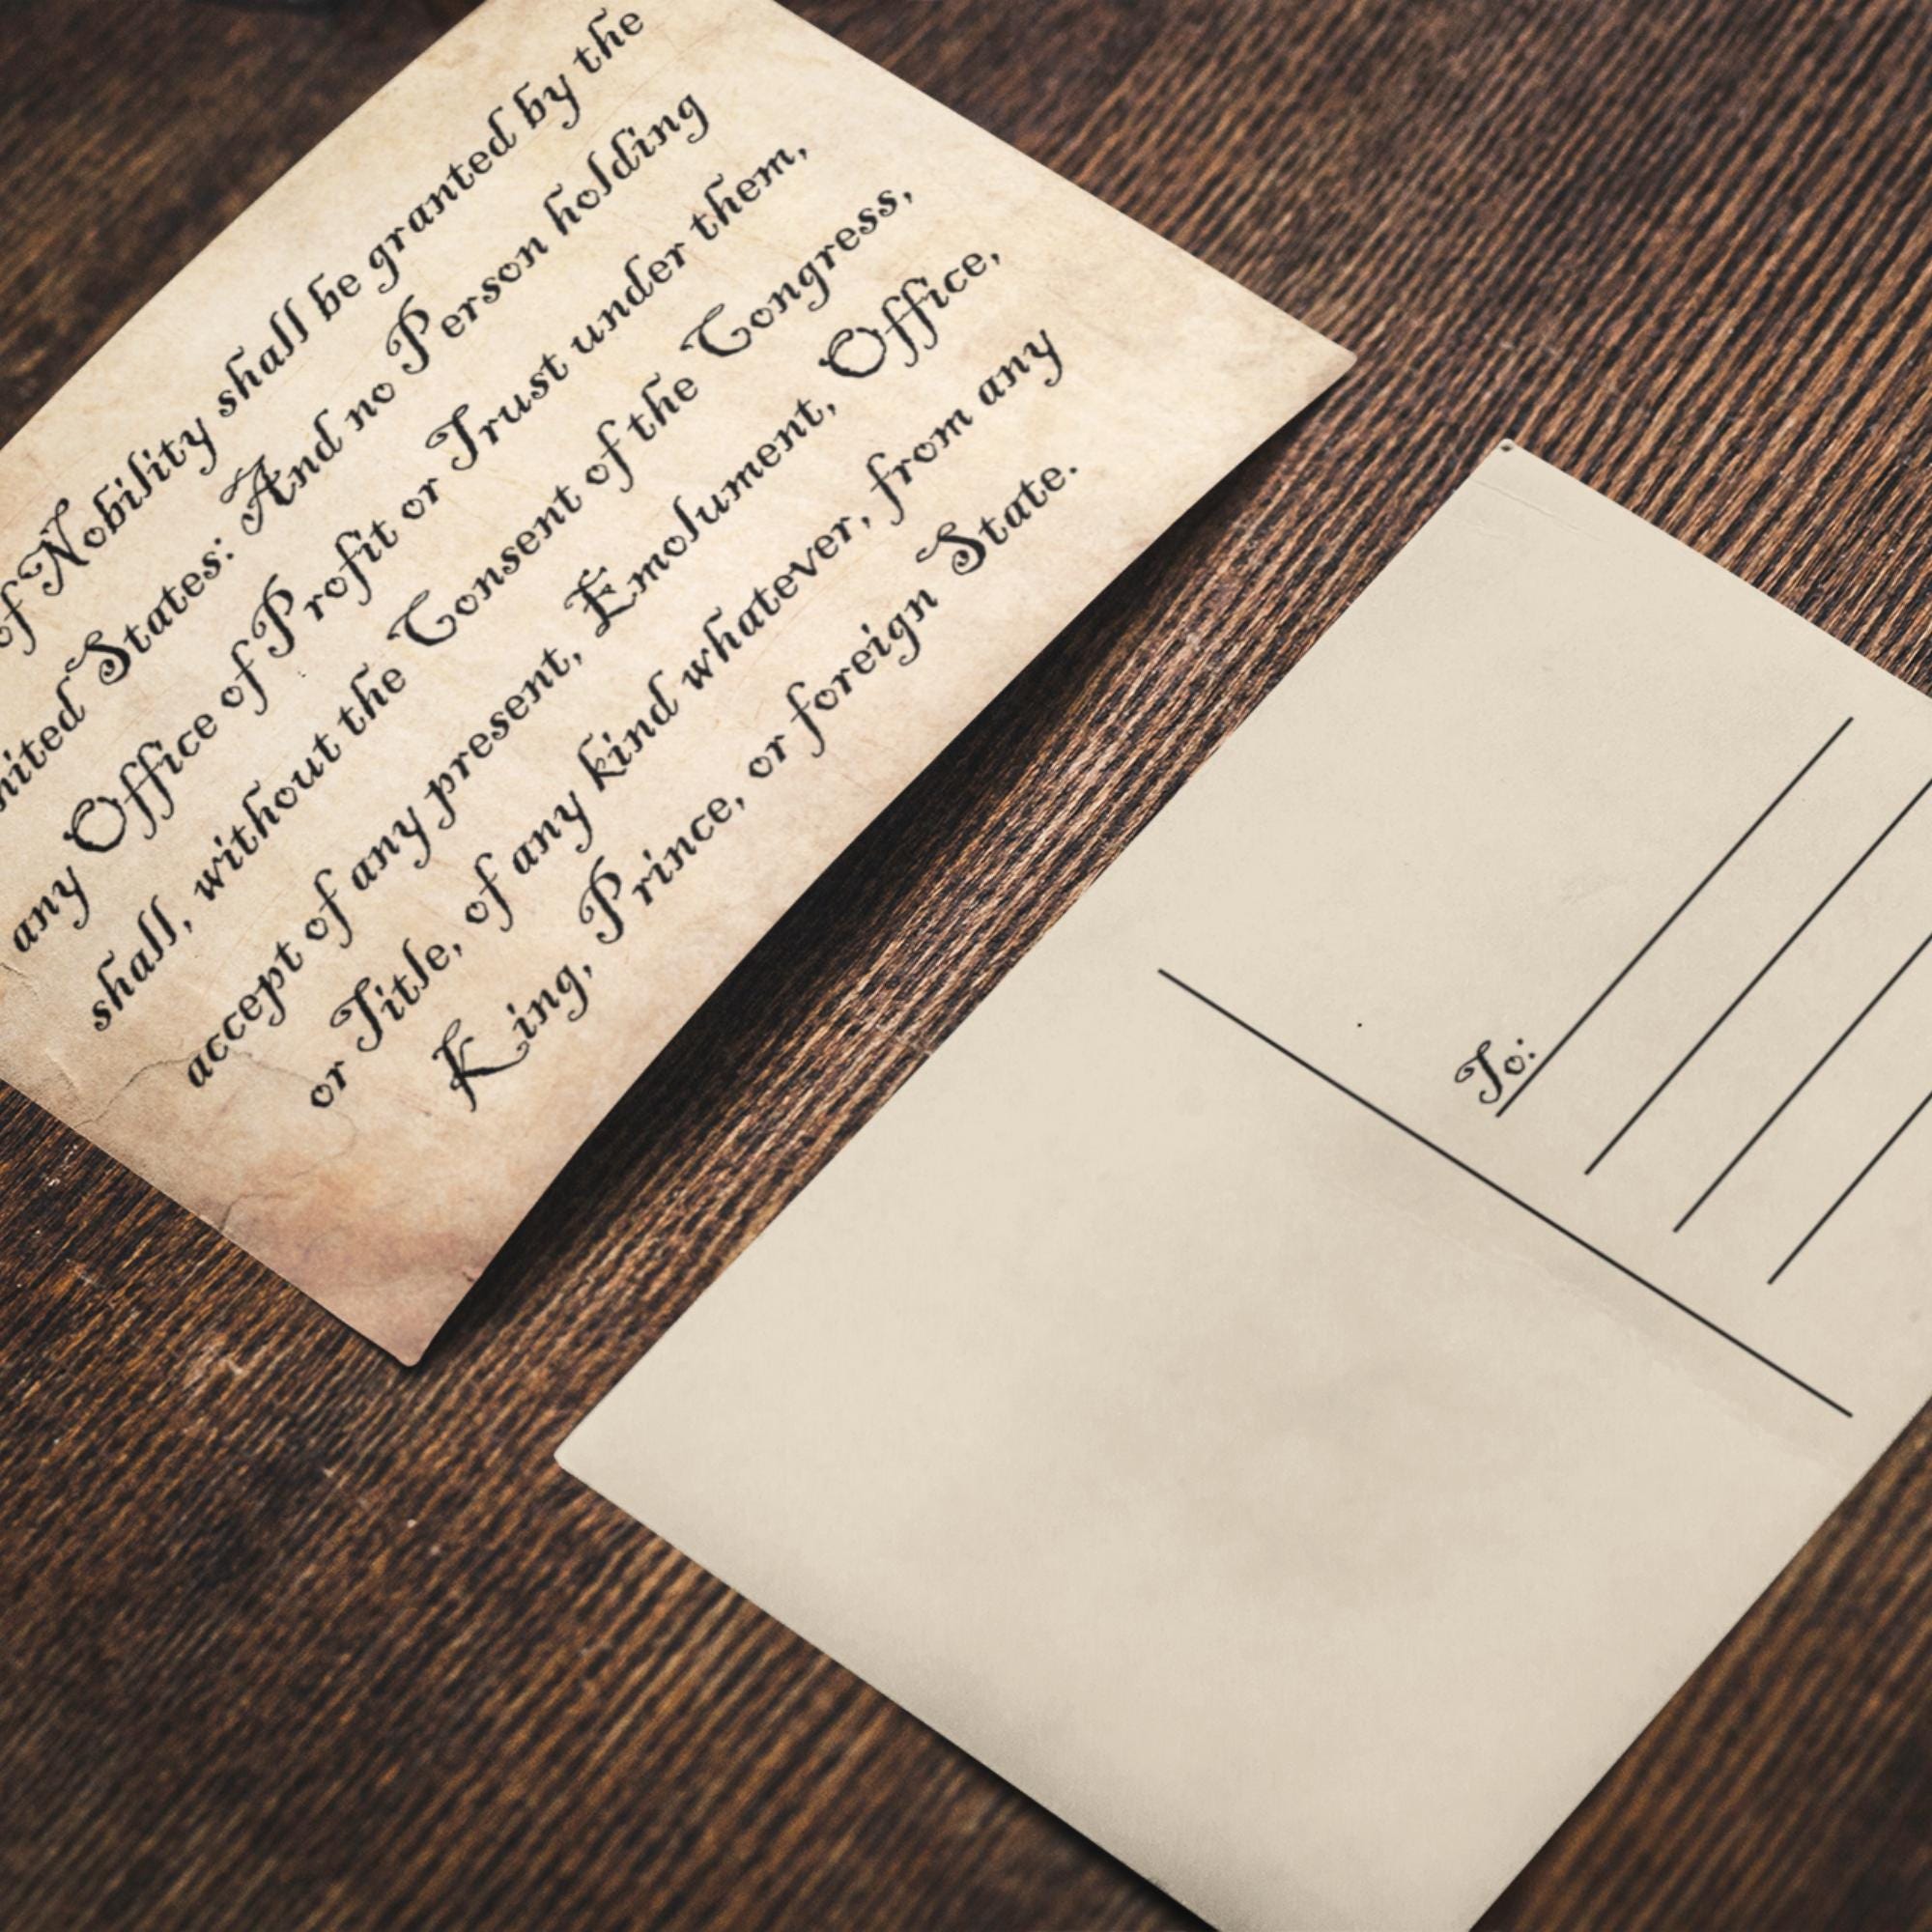 of Nobility shall be granted by the
nited States: And no Person holding
any Office of Profit or Trust under them,
shall, without the Consent of the Congress,
accept of any present, Emolument, Office,
or Title, of any kind whatever, from any
King, Prince, or foreign State.
To: